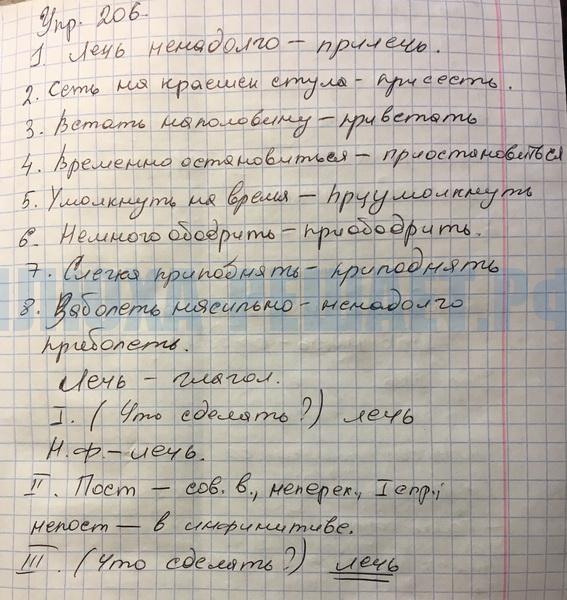 Упр. 206.
1. Лечь ненадолго – прилечь.
2. Сеть на краешек стула - присесть.
3. Встать наполовину – привстать
4. Временно остановиться – приостановиться
5. Умолкнуть на время – приумолкнуть
6. Немного ободрить – приободрить.
7. Слегка приподнять - приподнять
8. Заболеть нясильно - ненадолго
приболеть.
Лечь – глагол.
I. (Что сделать?) лечь
Н.ф. – лечь.
II. Пост – сов. в., неперех., I спр.;
непост – в инфинитиве.
III. (Что сделать?) лечь